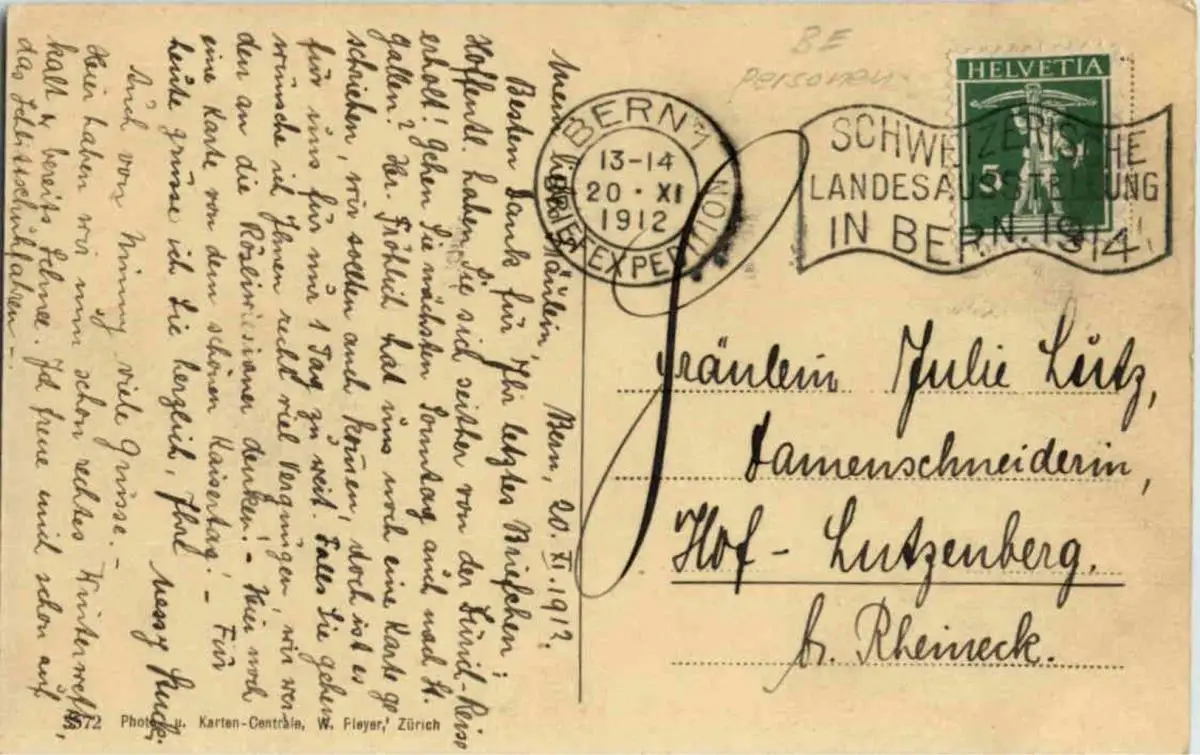 BE
Personen
HELVETIA
5
BERN 1
13-14
20 · XI
1912
BRIEFEXPEDITION
SCHWEIZERISCHE
LANDESAUSSTELLUNG
IN BERN. 1914
Fräulein Julie Lutz,
Damenschneiderin,
Hof - Lutzenberg.
b. Rheineck.
Bern, 20. XI. 1912.
Mein liebes Fräulein,
Besten Dank für Ihr letztes Briefchen;
Hoffentl. haben Sie sich seither von der Zürich-Reise
erholt! Gehen Sie nächsten Sonntag auch nach St.
Gallen? Hr. Fröhlich hat uns noch eine Karte ge
schrieben, wir sollten auch kommen, doch ist es
für uns für nur 1 Tag zu weit. Falls Sie gehen
wünsche ich Ihnen recht viel Vergnügen, wir wer
den an die denken! - Hier noch
eine Karte von den schönen Kaisertag! - Für
heute grüsse ich Sie herzlich, Ihre
Auch von Mimmy viele Grüsse. -
Hier haben wir nun schon rechtes Winterwetter,
kalt u. bereits Schnee. Ich freue mich schon auf
das Schlittschuhfahren. -
3572 Photo u. Karten-Centrale, W. Pleyer, Zürich